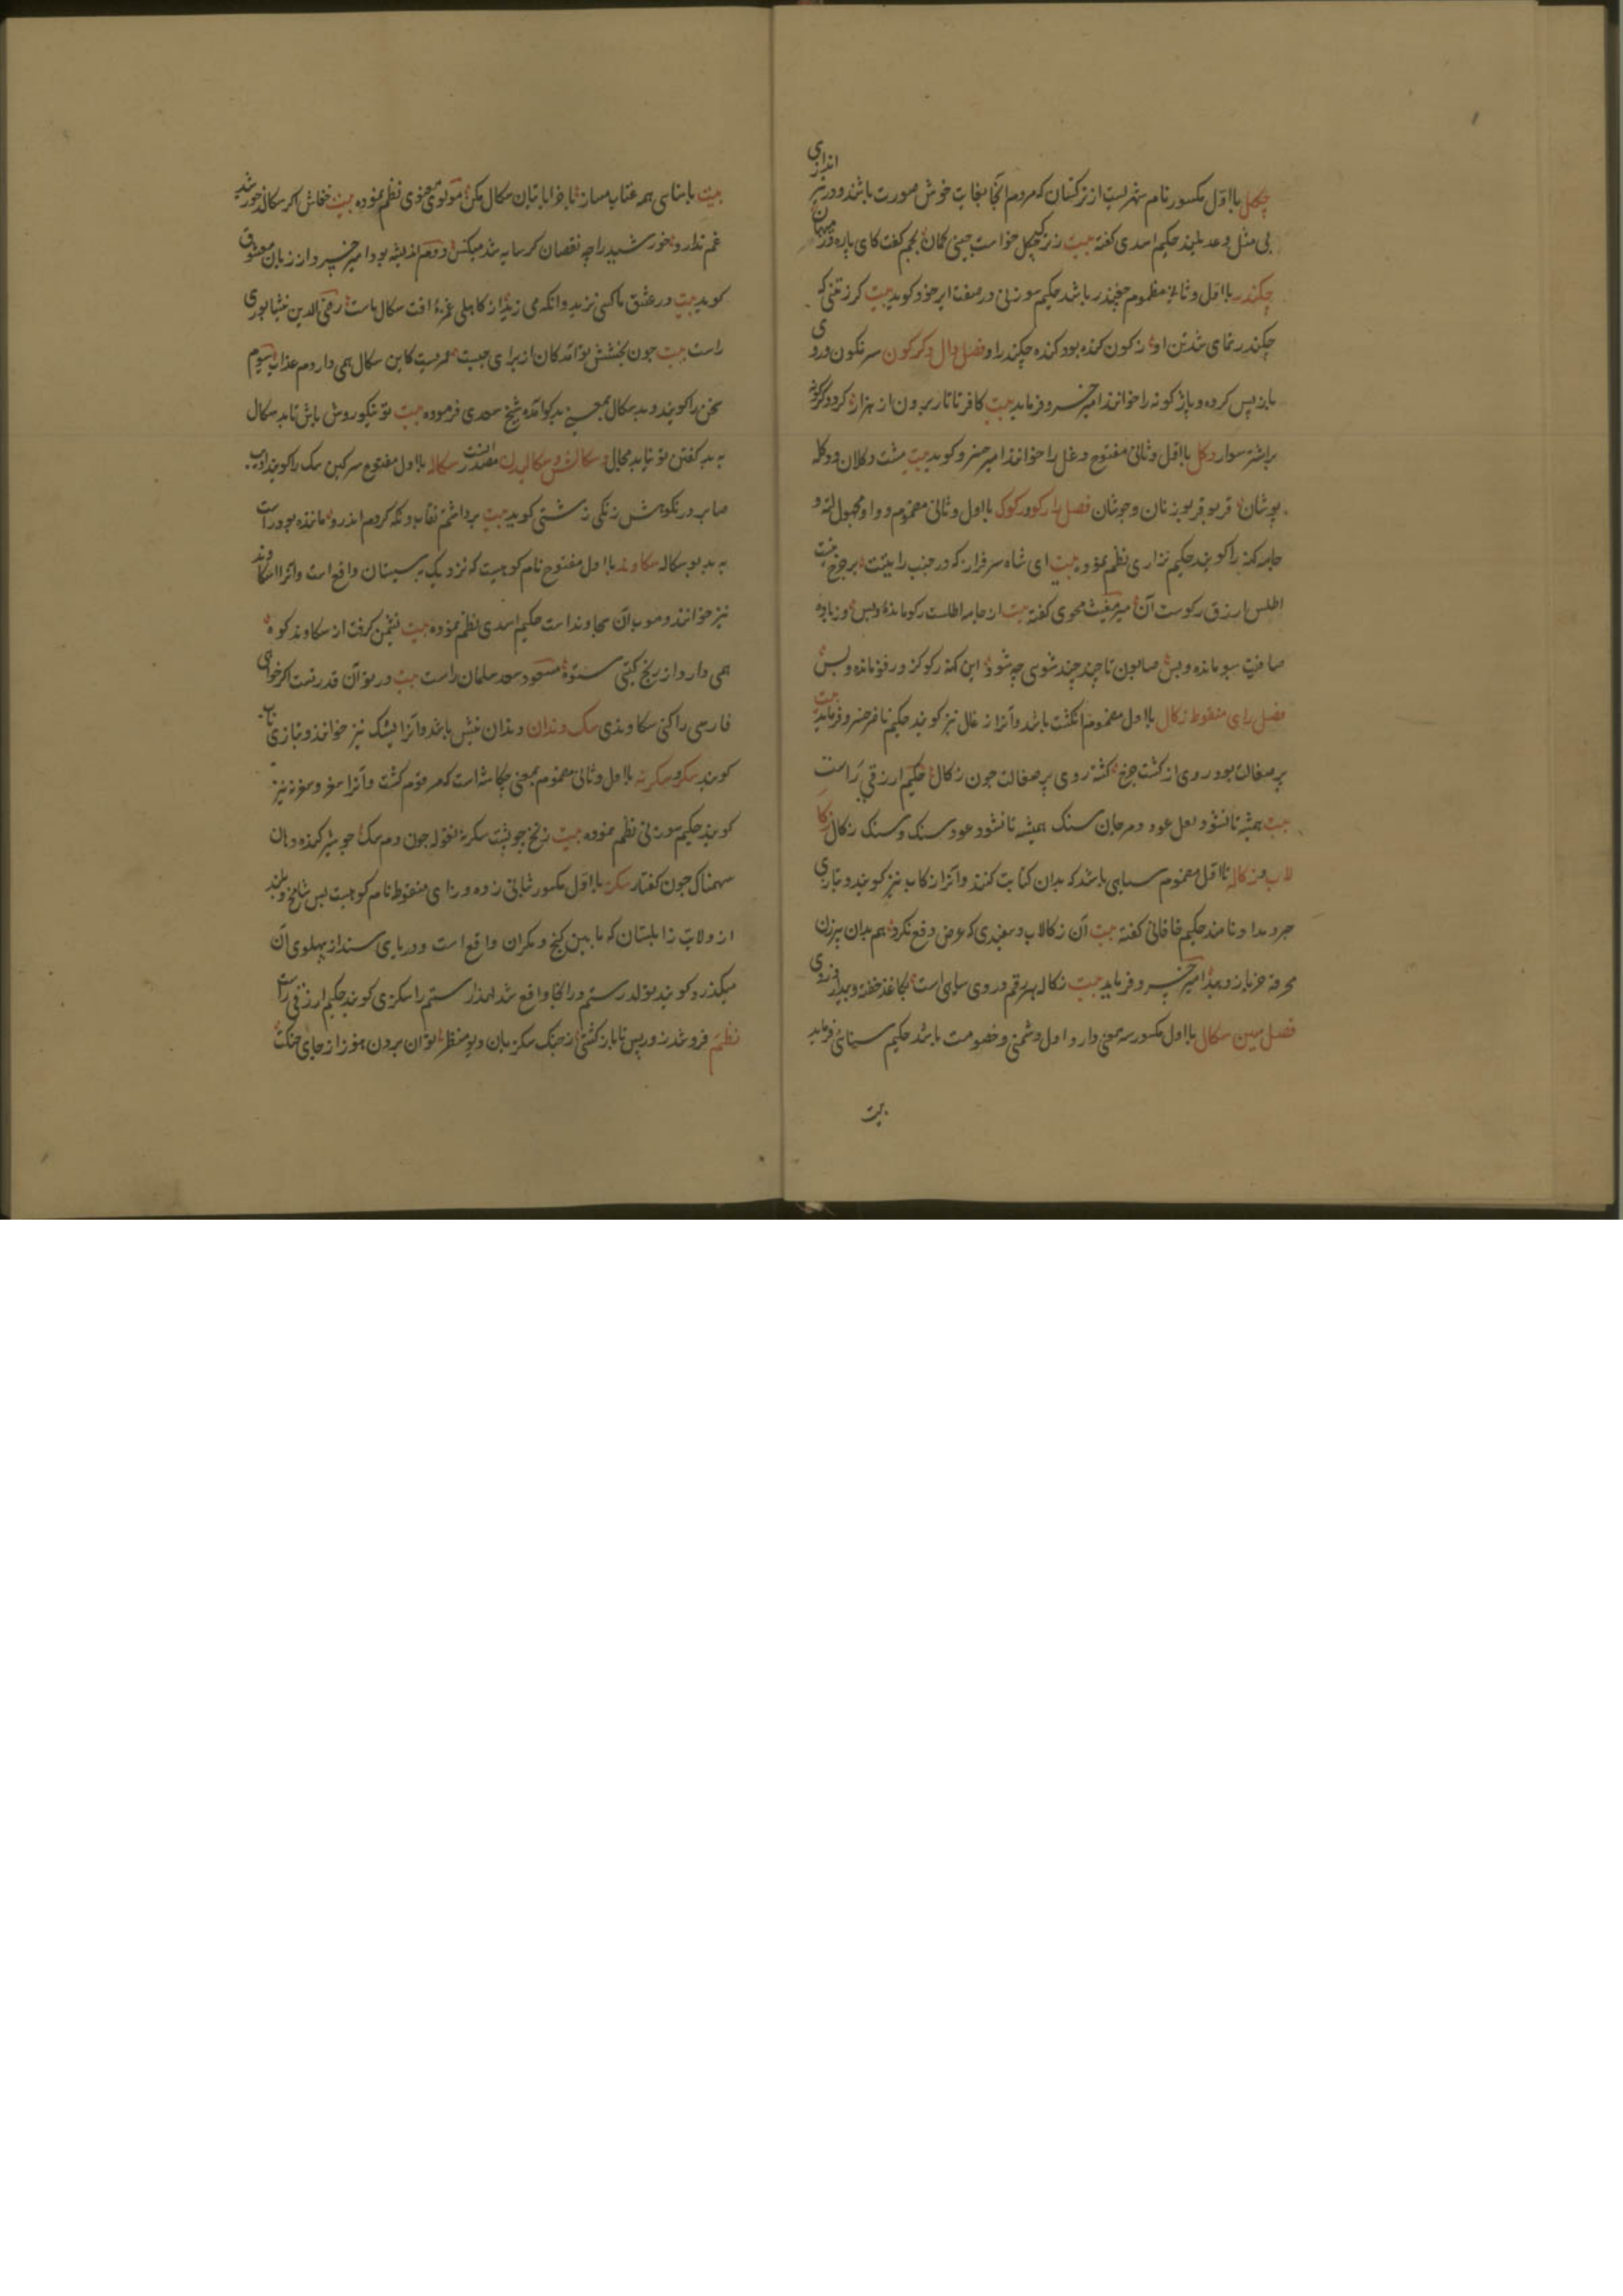 چکل با اول مکسور نام شهریست از ترکستان که مردم آنجا بغایت خوش صورت باشند و در تیر اندازی
بی مثل و عدیلند حکیم اسدی گفته بیت ز ترک چگل خواست چینی کمان بجم گفت کای
چکندر با اول و ثانی مضموم چغندر باشد حکیم سوزنی در صفت ایر خود گوید بیت کرزتنی که
چکندر نمای شد تن او کنده بود کنده چکندر را و فصل دال دکرکون سرنگون و روی
باز پس کرده و باژگونه را خوانند امیر خسرو فرماید بیت کافر تاتار برون از هزار کرده دکرگونه
براشتر سوار دکل با اول و ثانی مفتوح دغل را خوانند امیر خسرو گوید بیت مشت دکلان و دکله
پوشان قربوقربو زنان و جوشان فصل را رکو و رکوک با اول و ثانی مضموم و واو مجهول لته و
جامه کهنه را گویند حکیم نزاری نظم نموده بیت ای شاه سرفراز که در جنب رایتت بر چرخ بیت
اطلس ازرق رکوست آن میر مغیث محوی گفته بیت از جامه اطلست رکو مانده و بس وز باده
صافیت سبو مانده و بس صابون تا چند چند شوی چه شود این کهنه رکو کز و رفو مانده و بس
فصل زای منقوطه زکال با اول مضموم انکشت باشد و آنرا زغال نیز گویند حکیم ناصر خسرو فرماید بیت
پر صقالت بود روی از گشت چرخ گشته روی پر صقالت چون زکال حکیم ارزقی راست
بیت همیشه تا نشود لعل عود و مرجان سنک همیشه تا نشود عود سنک و سنک زکال زکا
لاب و زکاله با اول مضموم سیاهی باشد که بدان کتابت کنند و آنرا زکاب نیز گویند و بتازی
حبر و مداد نامند حکیم خاقانی گفته بیت آن زکالاب و سفیدی که عرض دفع نکرد هم بدان پیرزن
محرفه خر باز دهید امیر خسرو فرماید بیت زکاله بهر رقم در وی سیاهی است بکاغذ خفته و بیدار دزدی
فصل سین سکال با اول مکسور سه معنی دارد اول دشمنی و خصومت باشد حکیم سنائی فرماید
بیت
بیت با سنایی همه عتاب مساز با خرابا تیان سکال مکن مولوی معنوی نظم نموده بیت خفاش اگر سکالد خورشید
غم ندارد خورشید را چه نقصان گر سایه شد منکس دوم اندیشه بود امیر خسرو از زبان معشوق
گوید بیت در عشق ما کسی نزید وانکه می زید از کاهلی غمزه افت سکال ماست رضی الدین نیشابوری
راست بیت چون بخشش تو آمد کان از برای چیست عمریست کاین سکال همی دارد م عذاب سیوم
سخن را گویند و بد سکال بمعنی بد گو آمده شیخ سعدی فرموده بیت تو نیکو روش باش تا بد سکال
به بد گفتن تو نیابد مجال سکالش و سکالیدن مصدر است سکاله با اول مفتوح سرکین سک را گویند ادیب
صابر در نکوهش زنکی زشتی گوید بیت برداشتم نقاب و نکه کردم اندرو مانده بود راست
به بد بو سکاله سکاوند با اول مفتوح نام کوهیست که نزدیک به سیستان واقع است و آنرا اسکاوند
نیز خوانند و معرب آن سجاوند است حکیم اسدی نظم نموده بیت نشیمن گرفت از سکاوند کوه
همی دارد از رنج گیتی ستوه مسعود سعد سلمان راست بیت در تو آن قدرتست اگر خواهی
فارسی را کنی سکاوندی سک دندان دندان نیش باشد و آنرا یشک نیز خوانند و بتازی ناب
گویند سکر و سکرنه با اول و ثانی مضموم بمعنی چکاشه است که مرقوم گشت و آنرا سغر و سغرنه نیز
گویند حکیم سوزنی نظم نموده بیت زنخ چو پشت سکرنه نغوله چون دم سک چو شیر گنده دهان
سهمناک چون کفتار سکز با اول مکسور بثانی زده و زای منقوطه نام کوهیست بس شامخ و بلند
از ولایت زابلستان که مابین کیج و مکران واقع است و دریای سند از پهلوی آن
میگذرد و گویند تولد رستم در آنجا واقع شد لهذا رستم را سکزی گویند حکیم ارزقی راست
نظم فرو شد ز و ریس تا باز گشتی از جنک سکزیان دیو منظر توان بردن هنوز از جای جنکت